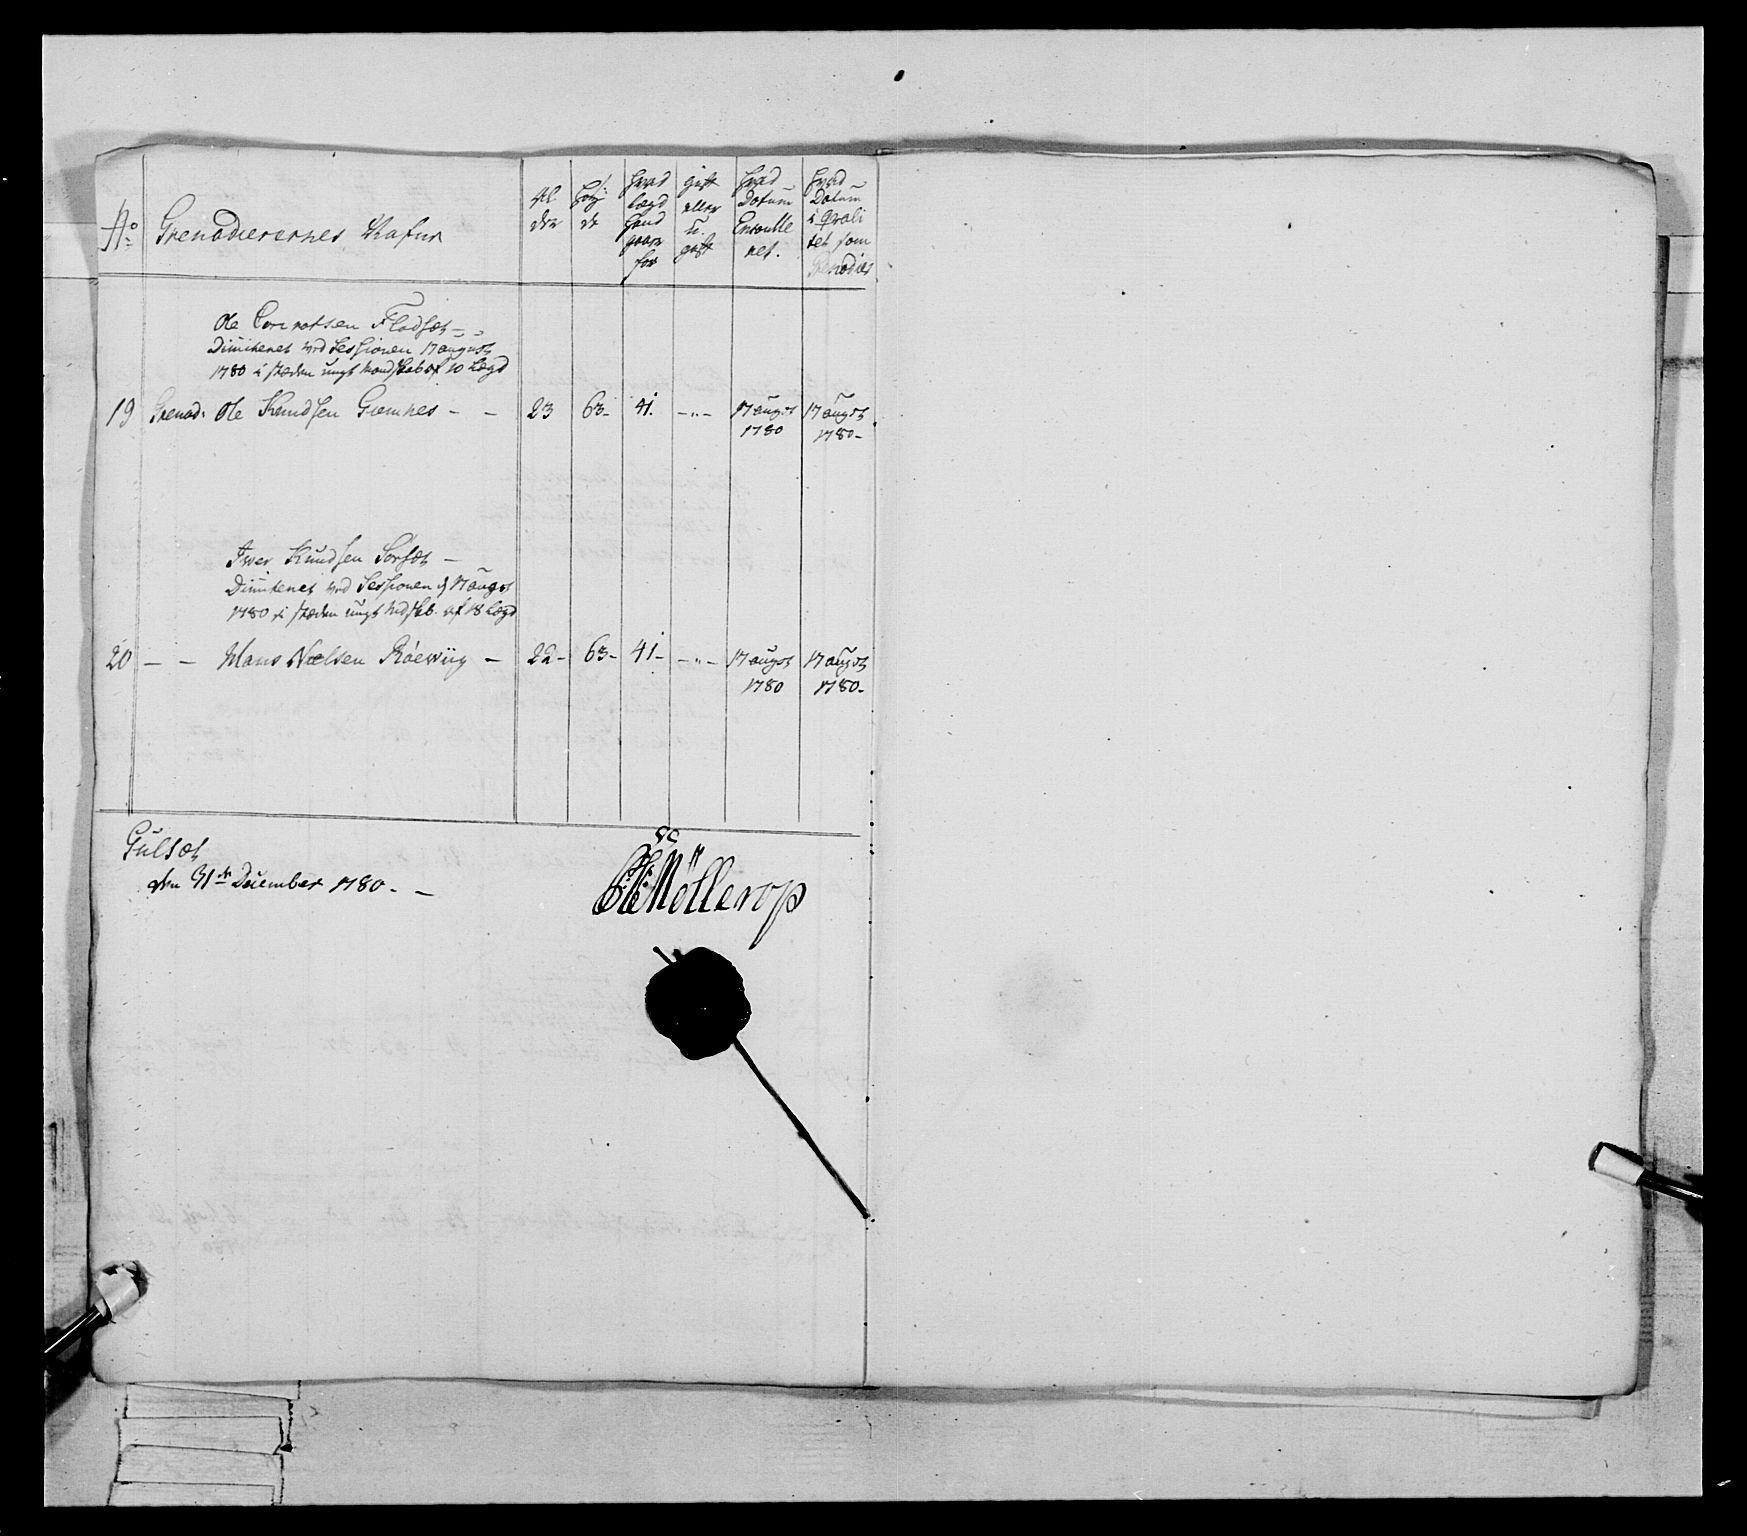 No Grenadierernes Nafne
Al
der
Høy
de
hvad
lægd
hand
staar
for
gift
eller
u
gift
hvad
Datum
Enroulle
ret.
hvad
Datum
i qvali
tet som
Grenadier
Ole Cornelsen Fladsæt
Dimiteret ved Sessionen 17 august
1780 i stæden ungt Mandskab af 10 Lægd
19 Grenad: Ole Knudsen Giemnes - - 23 63- 41. -"- 17 augst 17 augst
1780 1780-
Iver Knudsen Sorset -
Dimiteret ved Sessionen d 17 augst
1780 i stæden ungt Mdskb. af 18 Lægd
20 - - Mans Nielsen - 22- 63- 41- -"- 17 augst 17 augst
1780 1780-
Gulset
den 31te December 1780. -
Møllerop